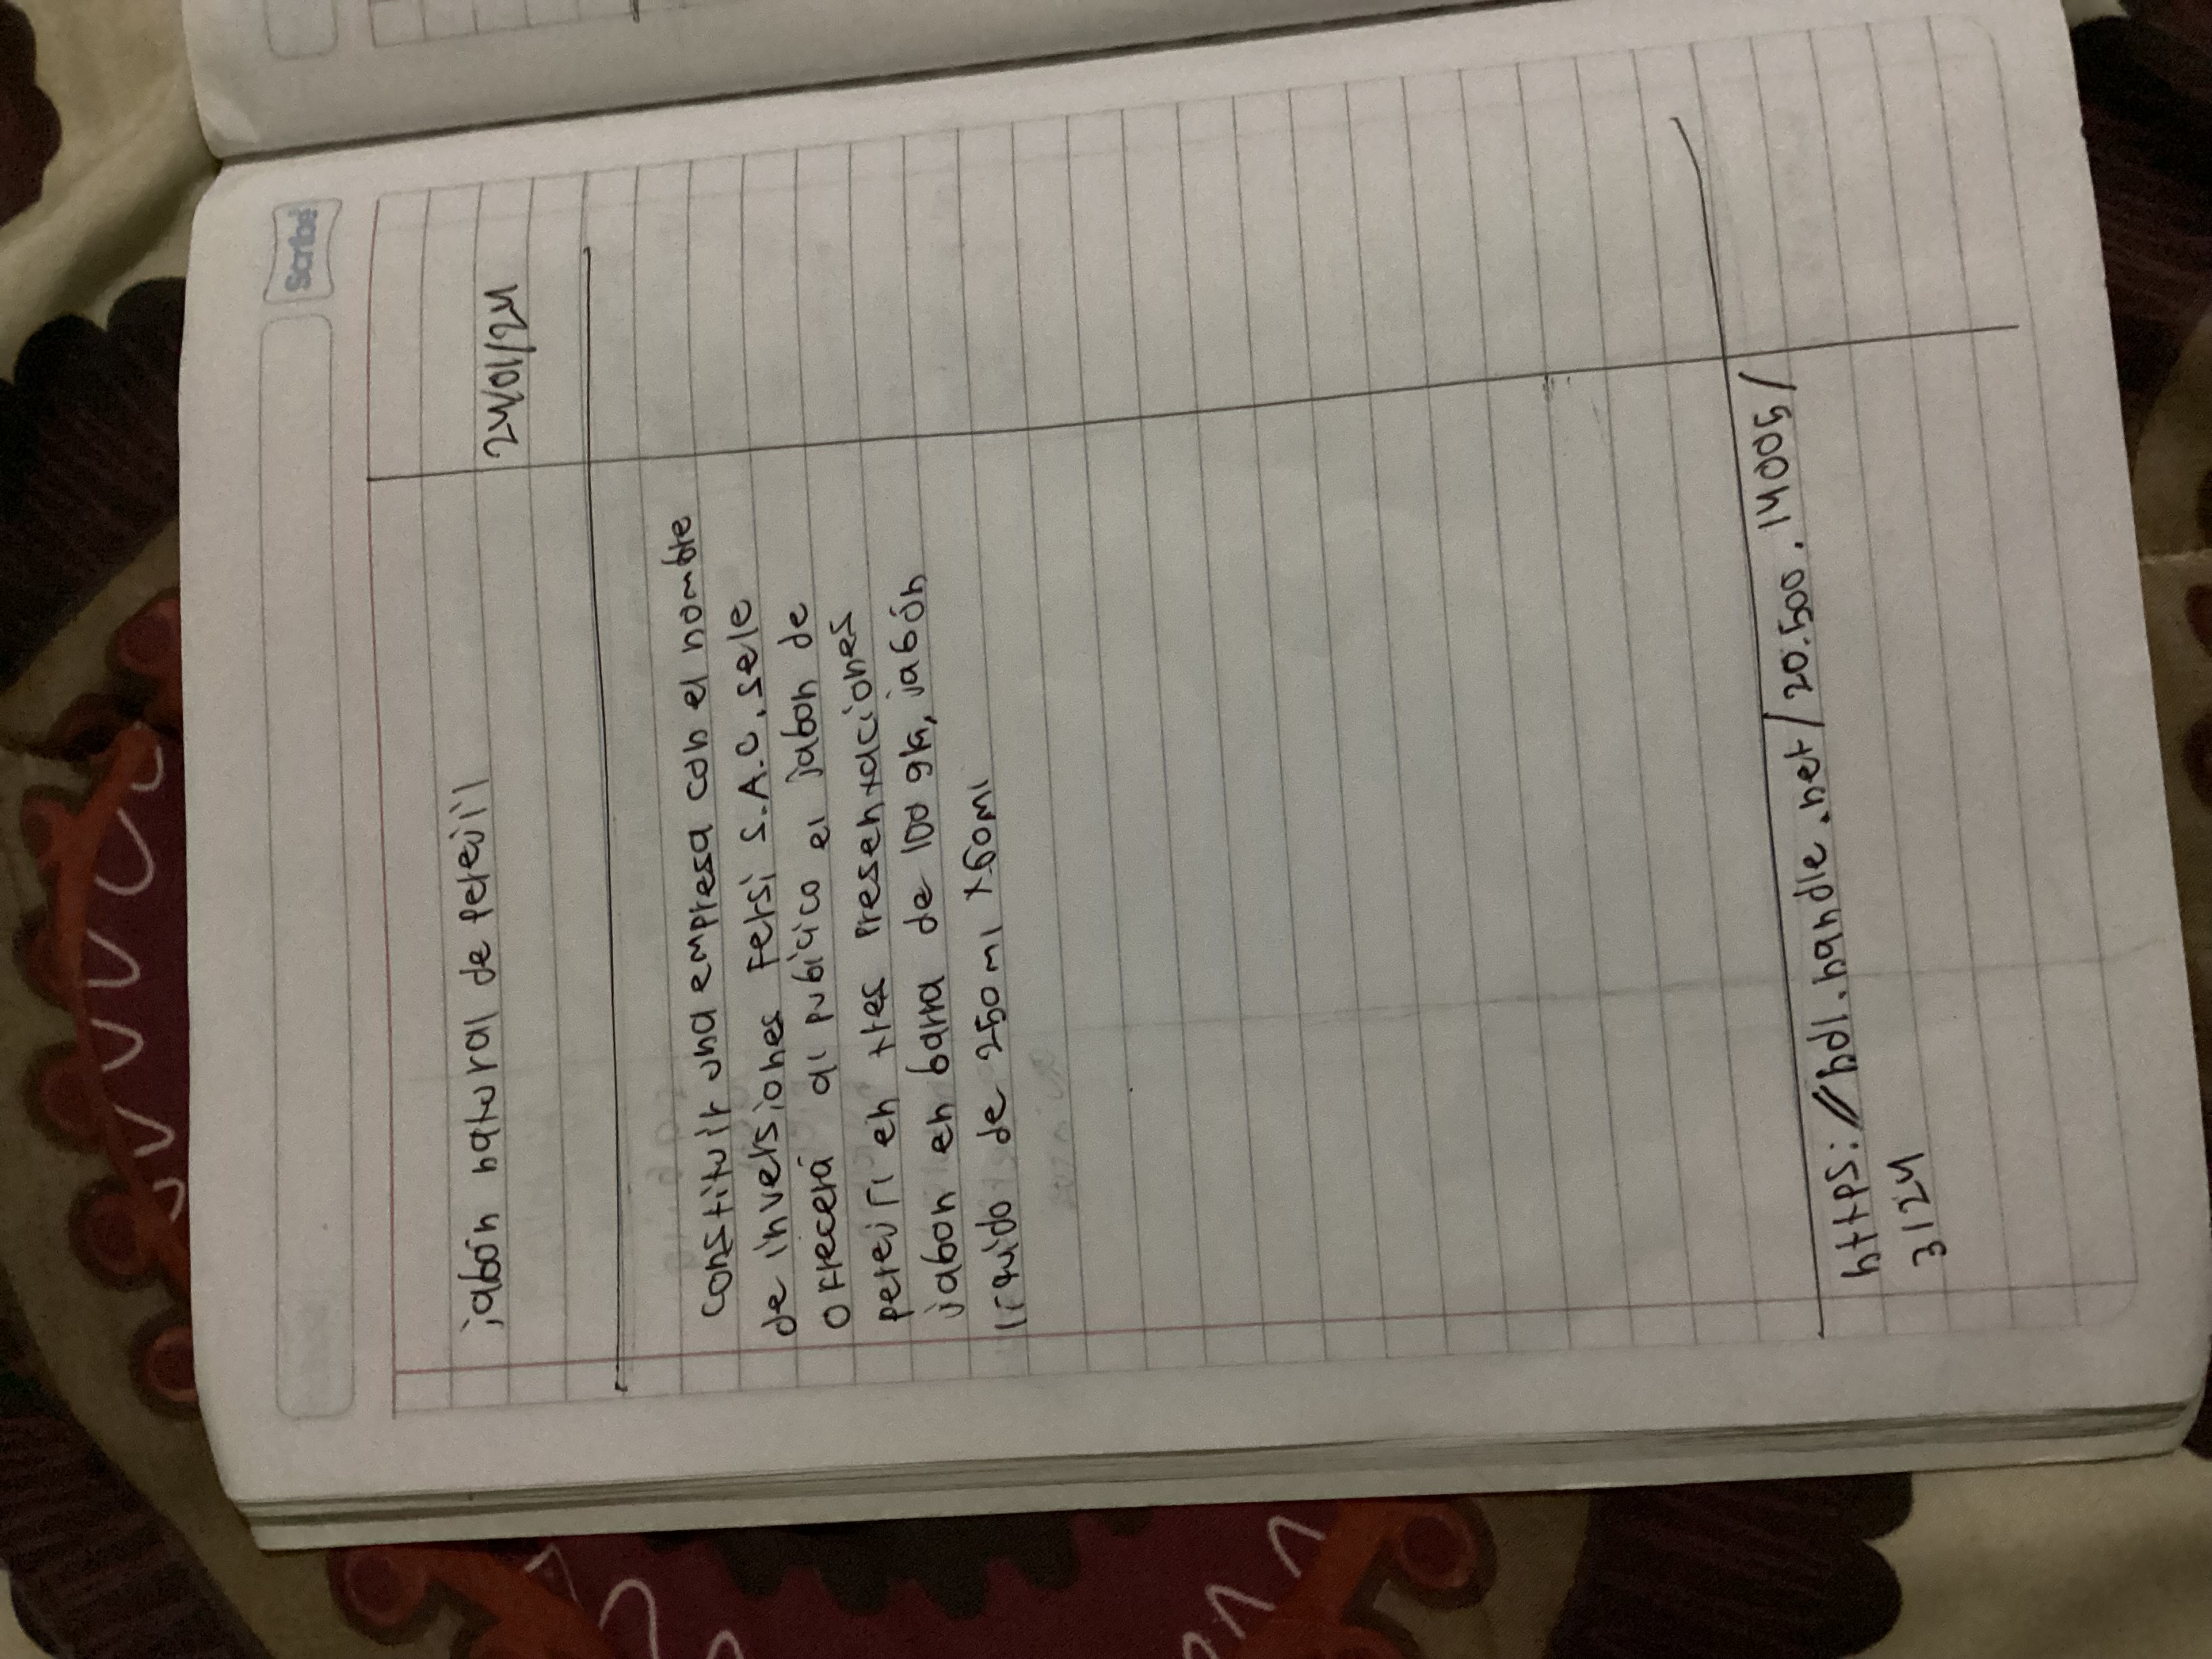 Scribe
jabón natural de perejil
24/01/24
constituir una empresa con el nombre
de inversiones Fersi S.A.C. sele
ofrecerá al publico el jabon de
perejíl en tres presentaciones
jabon en barra de 100 gr, jabón
líquido de 250 ml x60ml
https://hdl.handle.net/20.500.14005/
3124